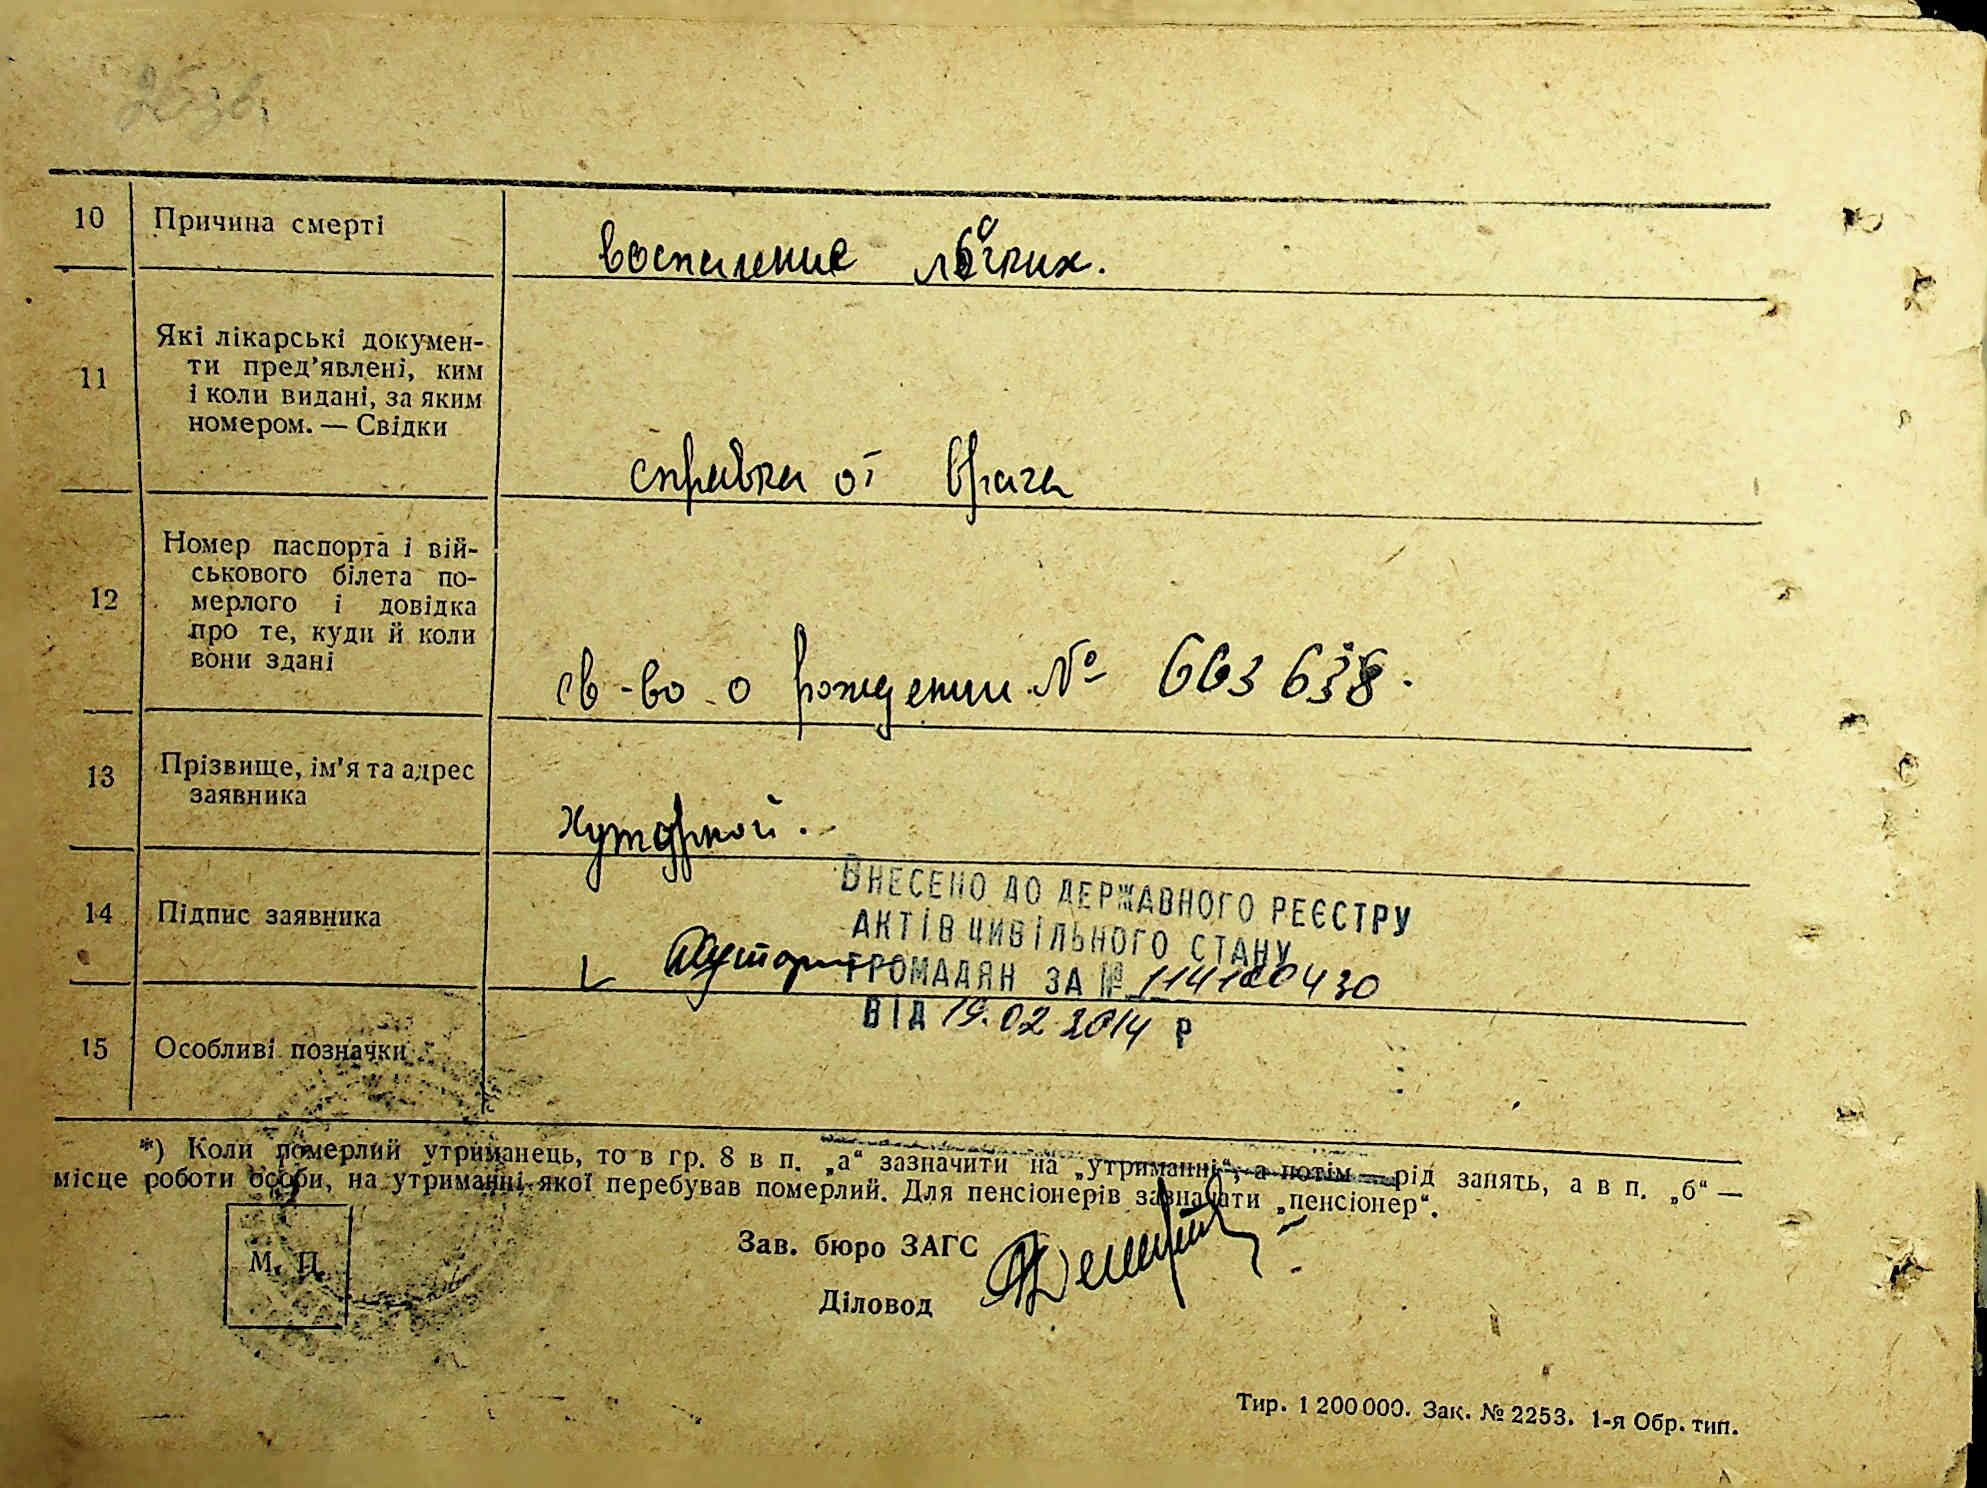 10 Причина смерті воспаление лёгких.
11 Які лікарські докумен-
ти пред’явлені, ким
і коли видані, за яким
номером. — Свідки
справка от врача
12 Номер паспорта і вій-
ськового білета по-
мерлого і довідка
про те, куди й коли
вони здані
св-во о рождении № 663 638.
13 Прізвище, ім’я та адрес
заявника
Хуторной.
ВНЕСЕНО ДО ДЕРЖАВНОГО РЕЄСТРУ
14 Підпис заявника
АКТІВ ЦИВІЛЬНОГО СТАНУ
ГРОМАДЯН ЗА №
ВІД 19.02 2014 р
15 Особливі позначки
*) Коли померлий утриманець, то в гр. 8 в п. „а“ зазначити на „утриманні“, а потім — рід занять, а в п. „б“ —
місце роботи особи, на утриманні якої перебував померлий. Для пенсіонерів зазначати „пенсіонер“.
Зав. бюро ЗАГС
М. П.
Діловод
Тир. 1 200 000. Зак. № 2253. 1-я Обр. тип.